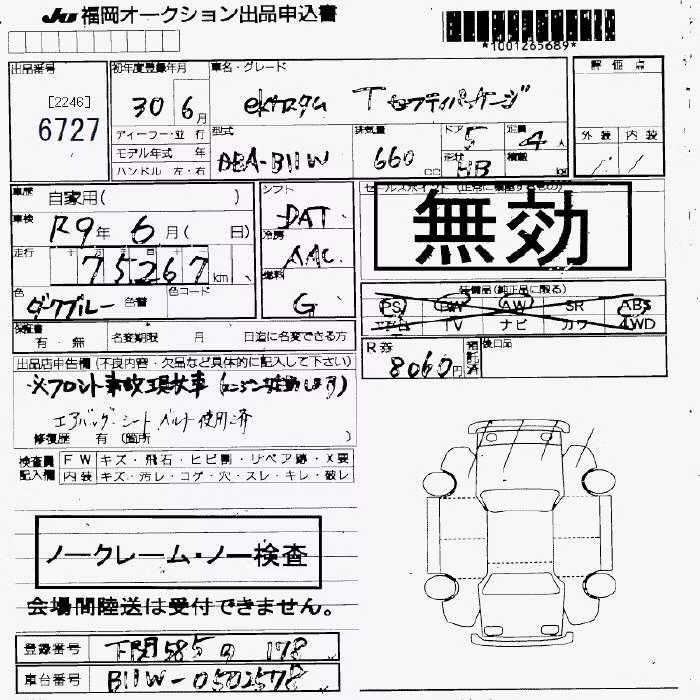 JU 福岡オークション出品申込書
*1001265689*
出品番号
[2246]
6727
初年度登録年月
30 6月
車名・グレード
eKカスタム T セーフティパッケージ
評価点
外装 内装
ディーラー・並行
モデル年式 年
ハンドル 左・右
型式
DBA-B11W
排気量
660 cc
ドア 5
形状 HB
定員 4人
積載 kg
車歴 自家用( )
車検 R9年 6月( 日)
走行 75267 km
色 ダークブルー 色替
色コード
シフト
DAT
冷房
AAC
燃料
G
セールスポイント
無効
装備品(純正品に限る)
PS PW AW SR ABS
TV ナビ カワ 4WD
R券 8060円
後日品
保証書 有・無
名変期限 月 日迄に名変できる方
出品店申告欄(不良内容・欠品など具体的に記入して下さい)
※フロント事故現状車(エンジン始動します)
エアバッグ・シートベルト使用済
修復歴 有(箇所 )
検査員記入欄
FW キズ・飛石・ヒビ割・リペア跡・X要
内装 キズ・汚レ・コゲ・穴・スレ・キレ・破レ
ノークレーム・ノー検査
会場間陸送は受付できません。
登録番号 下関585の178
車台番号 B11W-0502578